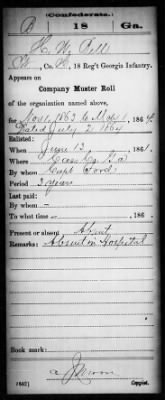 (Confederate.)
B 18 Ga.
H. W. Bell
Co. , 18 Reg't Georgia Infantry.
Appears on
Company Muster Roll
of the organization named above,
for Nov. 1863 to May 1, 1864
Dated July 2 1864
Enlisted:
When June 13, 1861.
Where Ga
By whom Capt. Ford
Period 3 years
Last paid:
By whom -
To what time - , 186 .
Present or absent Absent
Remarks: Absent in Hospital
Book mark:
Copyist.